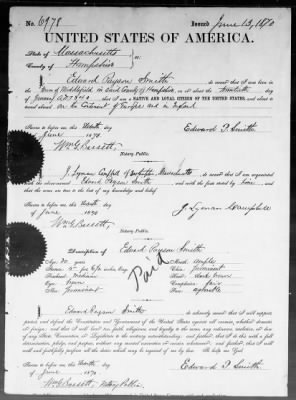 No. 6978 Issued June 13, 1870
UNITED STATES OF AMERICA.
State of Massachusetts
County of Hampshire
Edward Payson Smith, do swear that I was born in the
Town of Middlefield in said County of Hampshire, on or about the
day of
January A.D. ; that I am a NATIVE AND LOYAL CITIZEN OF THE UNITED STATES, and about
to travel on the Continent of Europe and in England
Sworn to before me this day
of June 1870. Edward P. Smith
Wm G. Bassett,
Notary Public.
I, Lyman Campbell of Massachusetts do swear that I am acquainted
with the above named Edward Payson Smith and with the facts stated by him, and
that the same are true to the best of my knowledge and belief.
Sworn to before me this day
of June 1870 J. Lyman Campbell
Wm G. Bassett,
Notary Public.
Description of Edward Payson Smith
Age: 30 years Mouth: ample
Stature: Eng. Chin: prominent
Forehead: medium Hair: dark brown
Eyes: Complexion: fair
Nose: prominent Face: agreeable
Paid
I, Edward Payson Smith do solemnly swear that I will support,
protect and defend the Constitution and Government of the United States against all enemies, whether domestic
or foreign; and that I will bear true faith, allegiance and loyalty to the same, any ordinance, resolution, or law
of any State, Convention, or Legislature to the contrary notwithstanding; and further, that I do this with a full
determination, pledge, and purpose, without any mental reservation or evasion whatsoever; and further, that I will
well and faithfully perform all the duties which may be required of me by law. So help me God.
Sworn to before me this day
of June 1870 Edward P. Smith
Wm G. Bassett, Notary Public